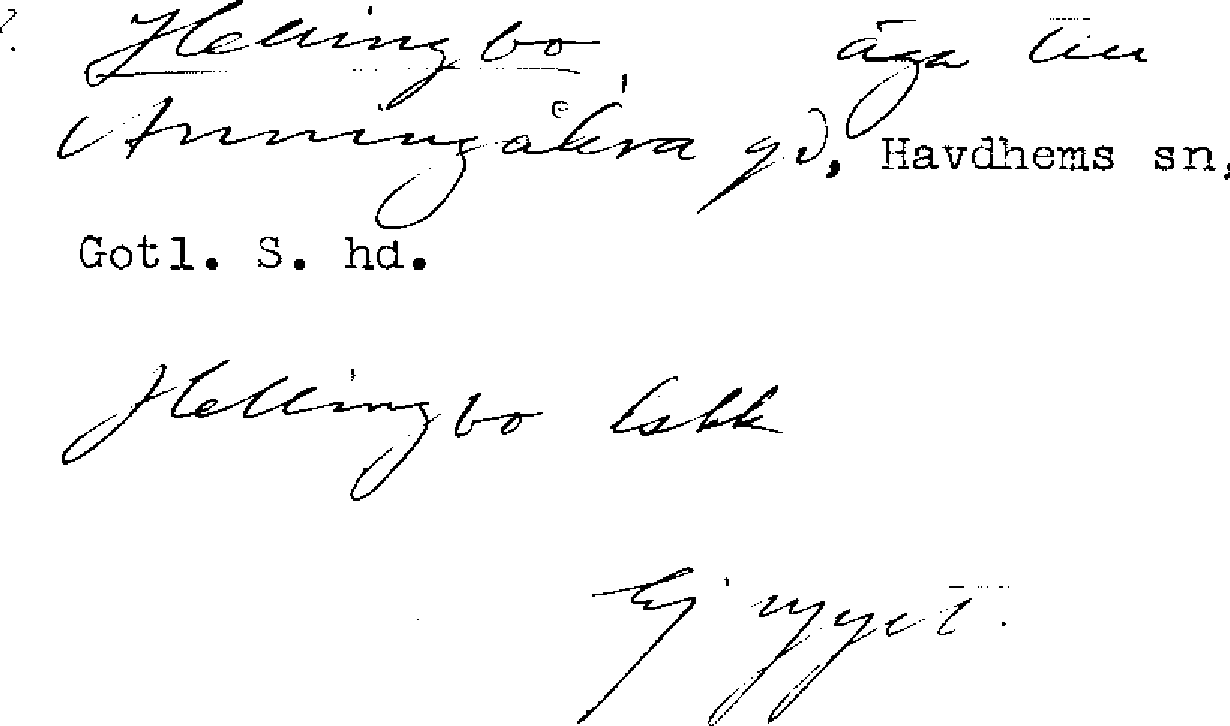 Hellingbo, äga till
Anningåkra gd, Havdhems sn,
Gotl. S. hd.
Hellingbo Eskk
Ej